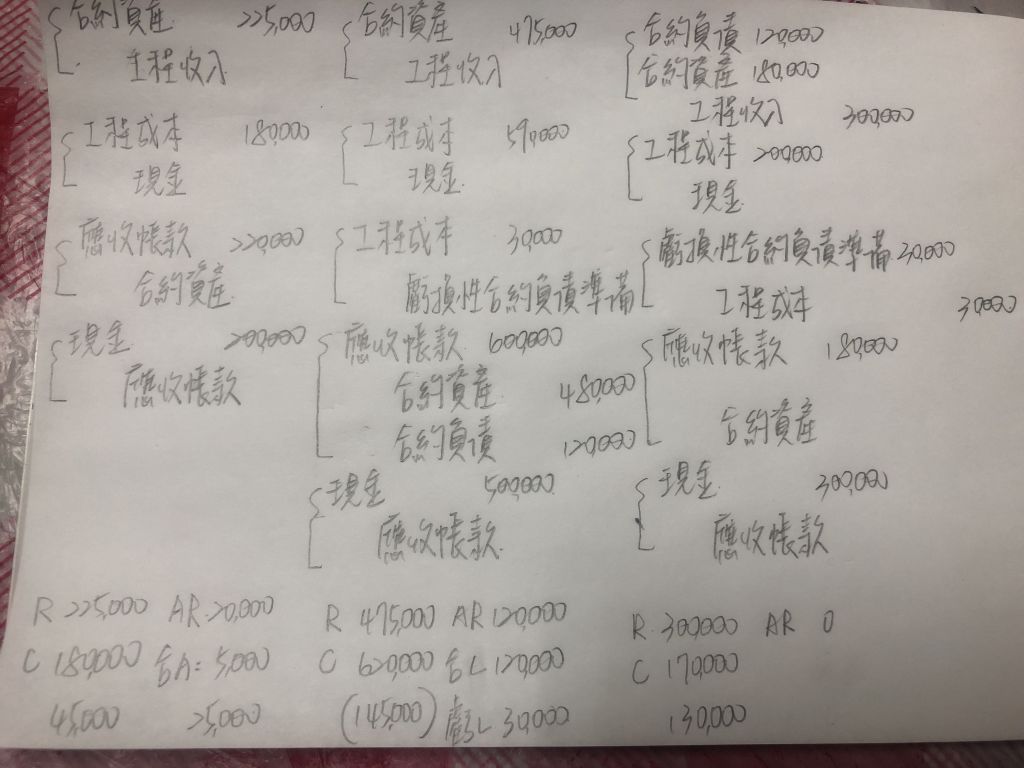 合約資產 225,000
工程收入
工程成本 180,000
現金
應收帳款 220,000
合約資產
現金 200,000
應收帳款
R 225,000 AR 20,000
C 180,000 合A: 5,000
45,000 25,000
合約資產 475,000
工程收入
工程成本 590,000
現金
工程成本 30,000
虧損性合約負債準備
應收帳款 600,000
合約資產 480,000
合約負債 120,000
現金 500,000
應收帳款
R 475,000 AR 120,000
C 620,000 合L 120,000
(145,000) 虧L 30,000
合約負債 120,000
合約資產 180,000
工程收入 300,000
工程成本 200,000
現金
虧損性合約負債準備 30,000
工程成本 30,000
應收帳款 180,000
合約資產
現金 300,000
應收帳款
R 300,000 AR 0
C 170,000
130,000